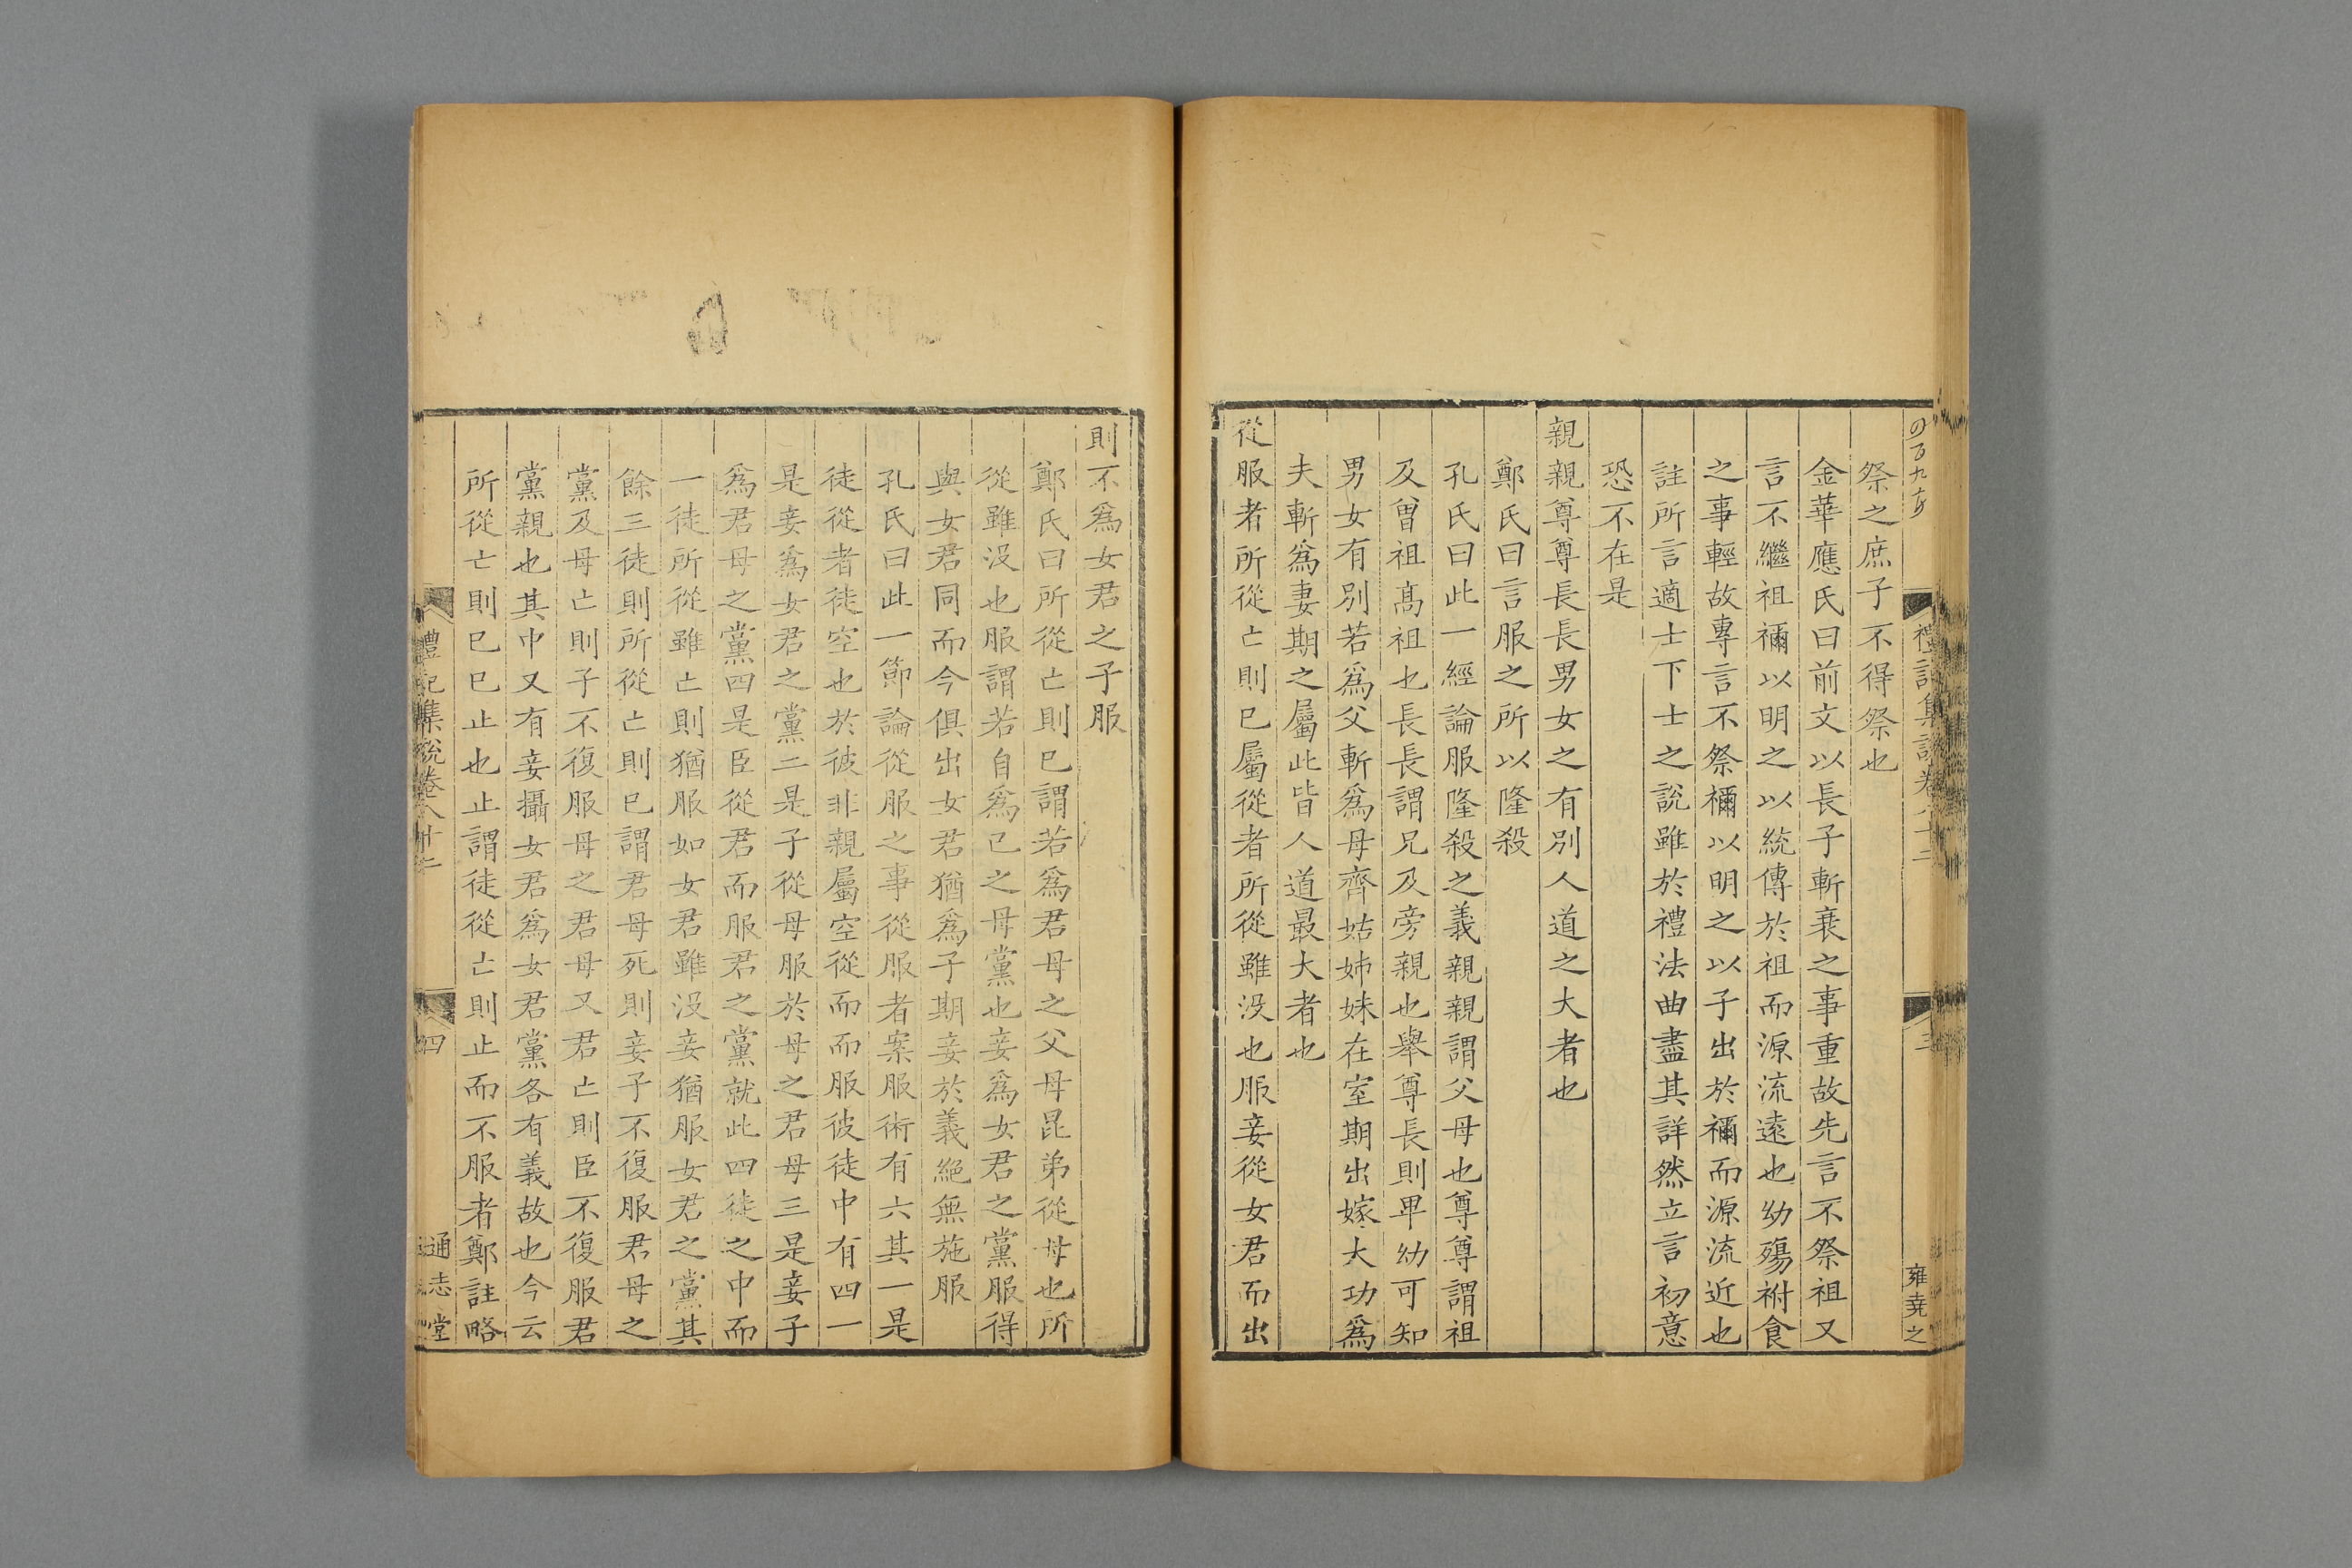 禮記集說卷八十二
三
雍堯之
祭之庶子不得祭也
金華應氏曰前文以長子斬衰之事重故先言不祭祖又
言不繼祖禰以明之以統傳於祖而源流遠也幼殤祔食
之事輕故專言不祭禰以明之以子出於禰而源流近也
註所言適士下士之說雖於禮法曲盡其詳然立言初意
恐不在是
親親尊尊長長男女之有別人道之大者也
鄭氏曰言服之所以隆殺
孔氏曰此一經論服隆殺之義親親謂父母也尊尊謂祖
及曾祖髙祖也長長謂兄及旁親也舉尊長則卑幼可知
男女有別若為父斬為母齊姑姊妹在室期出嫁大功為
夫斬為妻期之屬此皆人道最大者也
從服者所從亡則已屬從者所從雖没也服妾從女君而出
則不為女君之子服
鄭氏曰所從亡則已謂若為君母之父母昆弟從母也所
從雖没也服謂若自為已之母黨也妾為女君之黨服得
與女君同而今俱出女君猶為子期妾於義絕無施服
孔氏曰此一節論從服之事從服者案服術有六其一是
徒從者徒空也於彼非親屬空從而服彼徒中有四一
是妾為女君之黨二是子從母服於母之君母三是妾子
為君母之黨四是臣從君而服君之黨就此四徒之中而
一徒所從雖亡則猶服如女君雖没妾猶服女君之黨其
餘三徒則所從亡則已謂君母死則妾子不復服君母之
黨及母亡則子不復服母之君母又君亡則臣不復服君
黨親也其中又有妾攝女君為女君黨各有義故也今云
所從亡則已已止也止謂徒從亡則止而不服者鄭註略
禮記集說卷八十二
四
通志堂